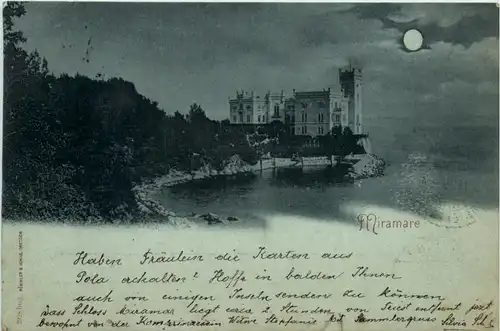 Miramare
Haben Fräulein die Karten aus
Pola erhalten? Hoffe in balden Ihnen
auch von einigen Inseln senden zu können
Das Schloss Miramar liegt circa 2 Stunden von Triest entfernt jetzt
bewohnt von der Kronprinzessin Witwe Stephanie. Mit Kammergruss Silvio